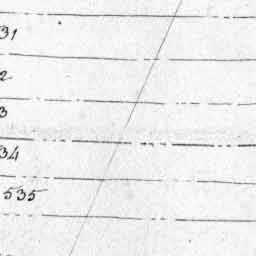 31
2
3
34
535